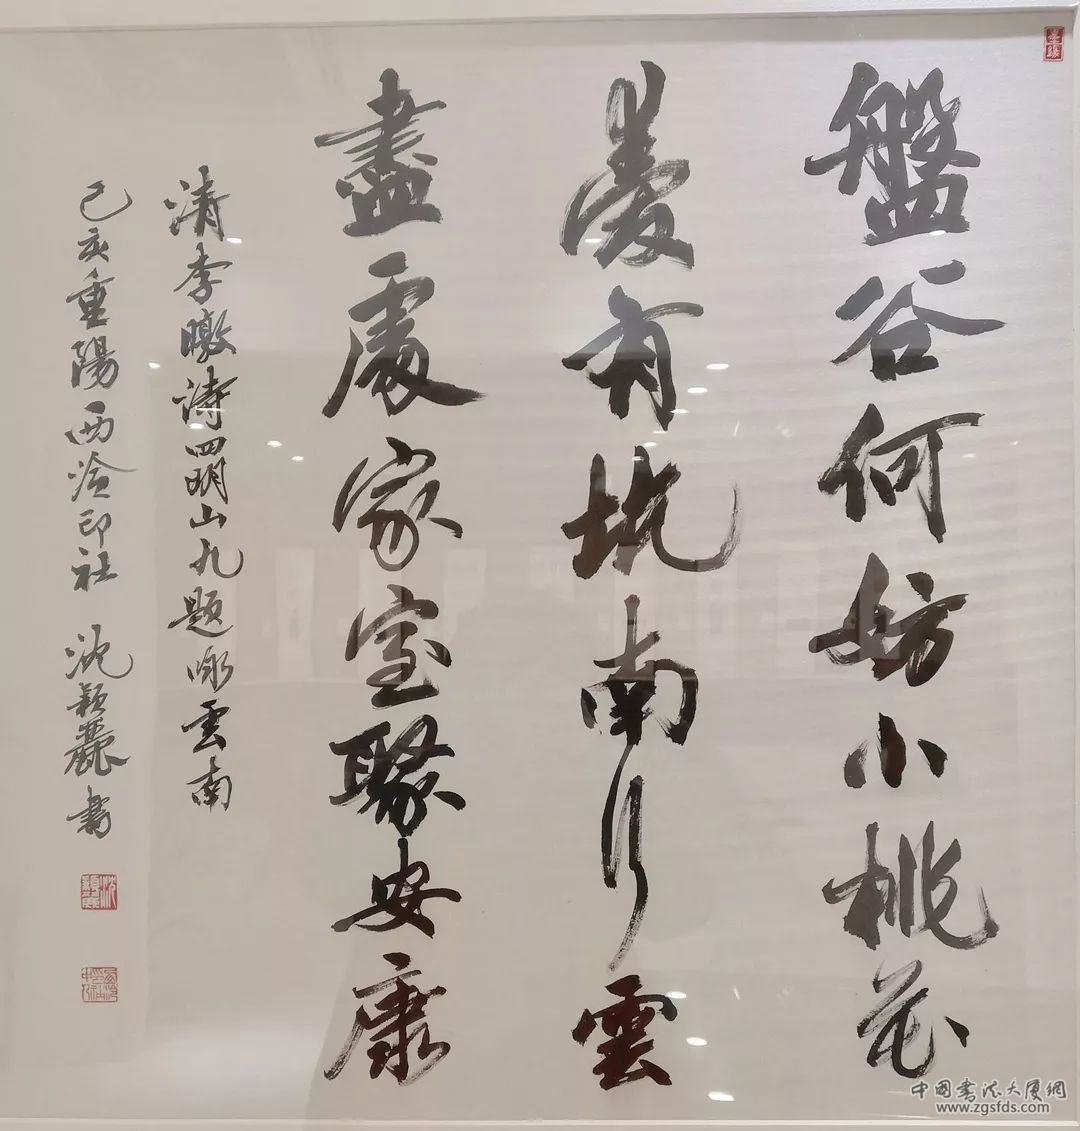 盤谷何妨小桃花
麥有坑南行雲
盡處家家室聚安康
清李暾濤四明山九題咏雲南
己亥重陽西泠印社 沈穎麗書
中國書法大廈網
www.zgsfds.com